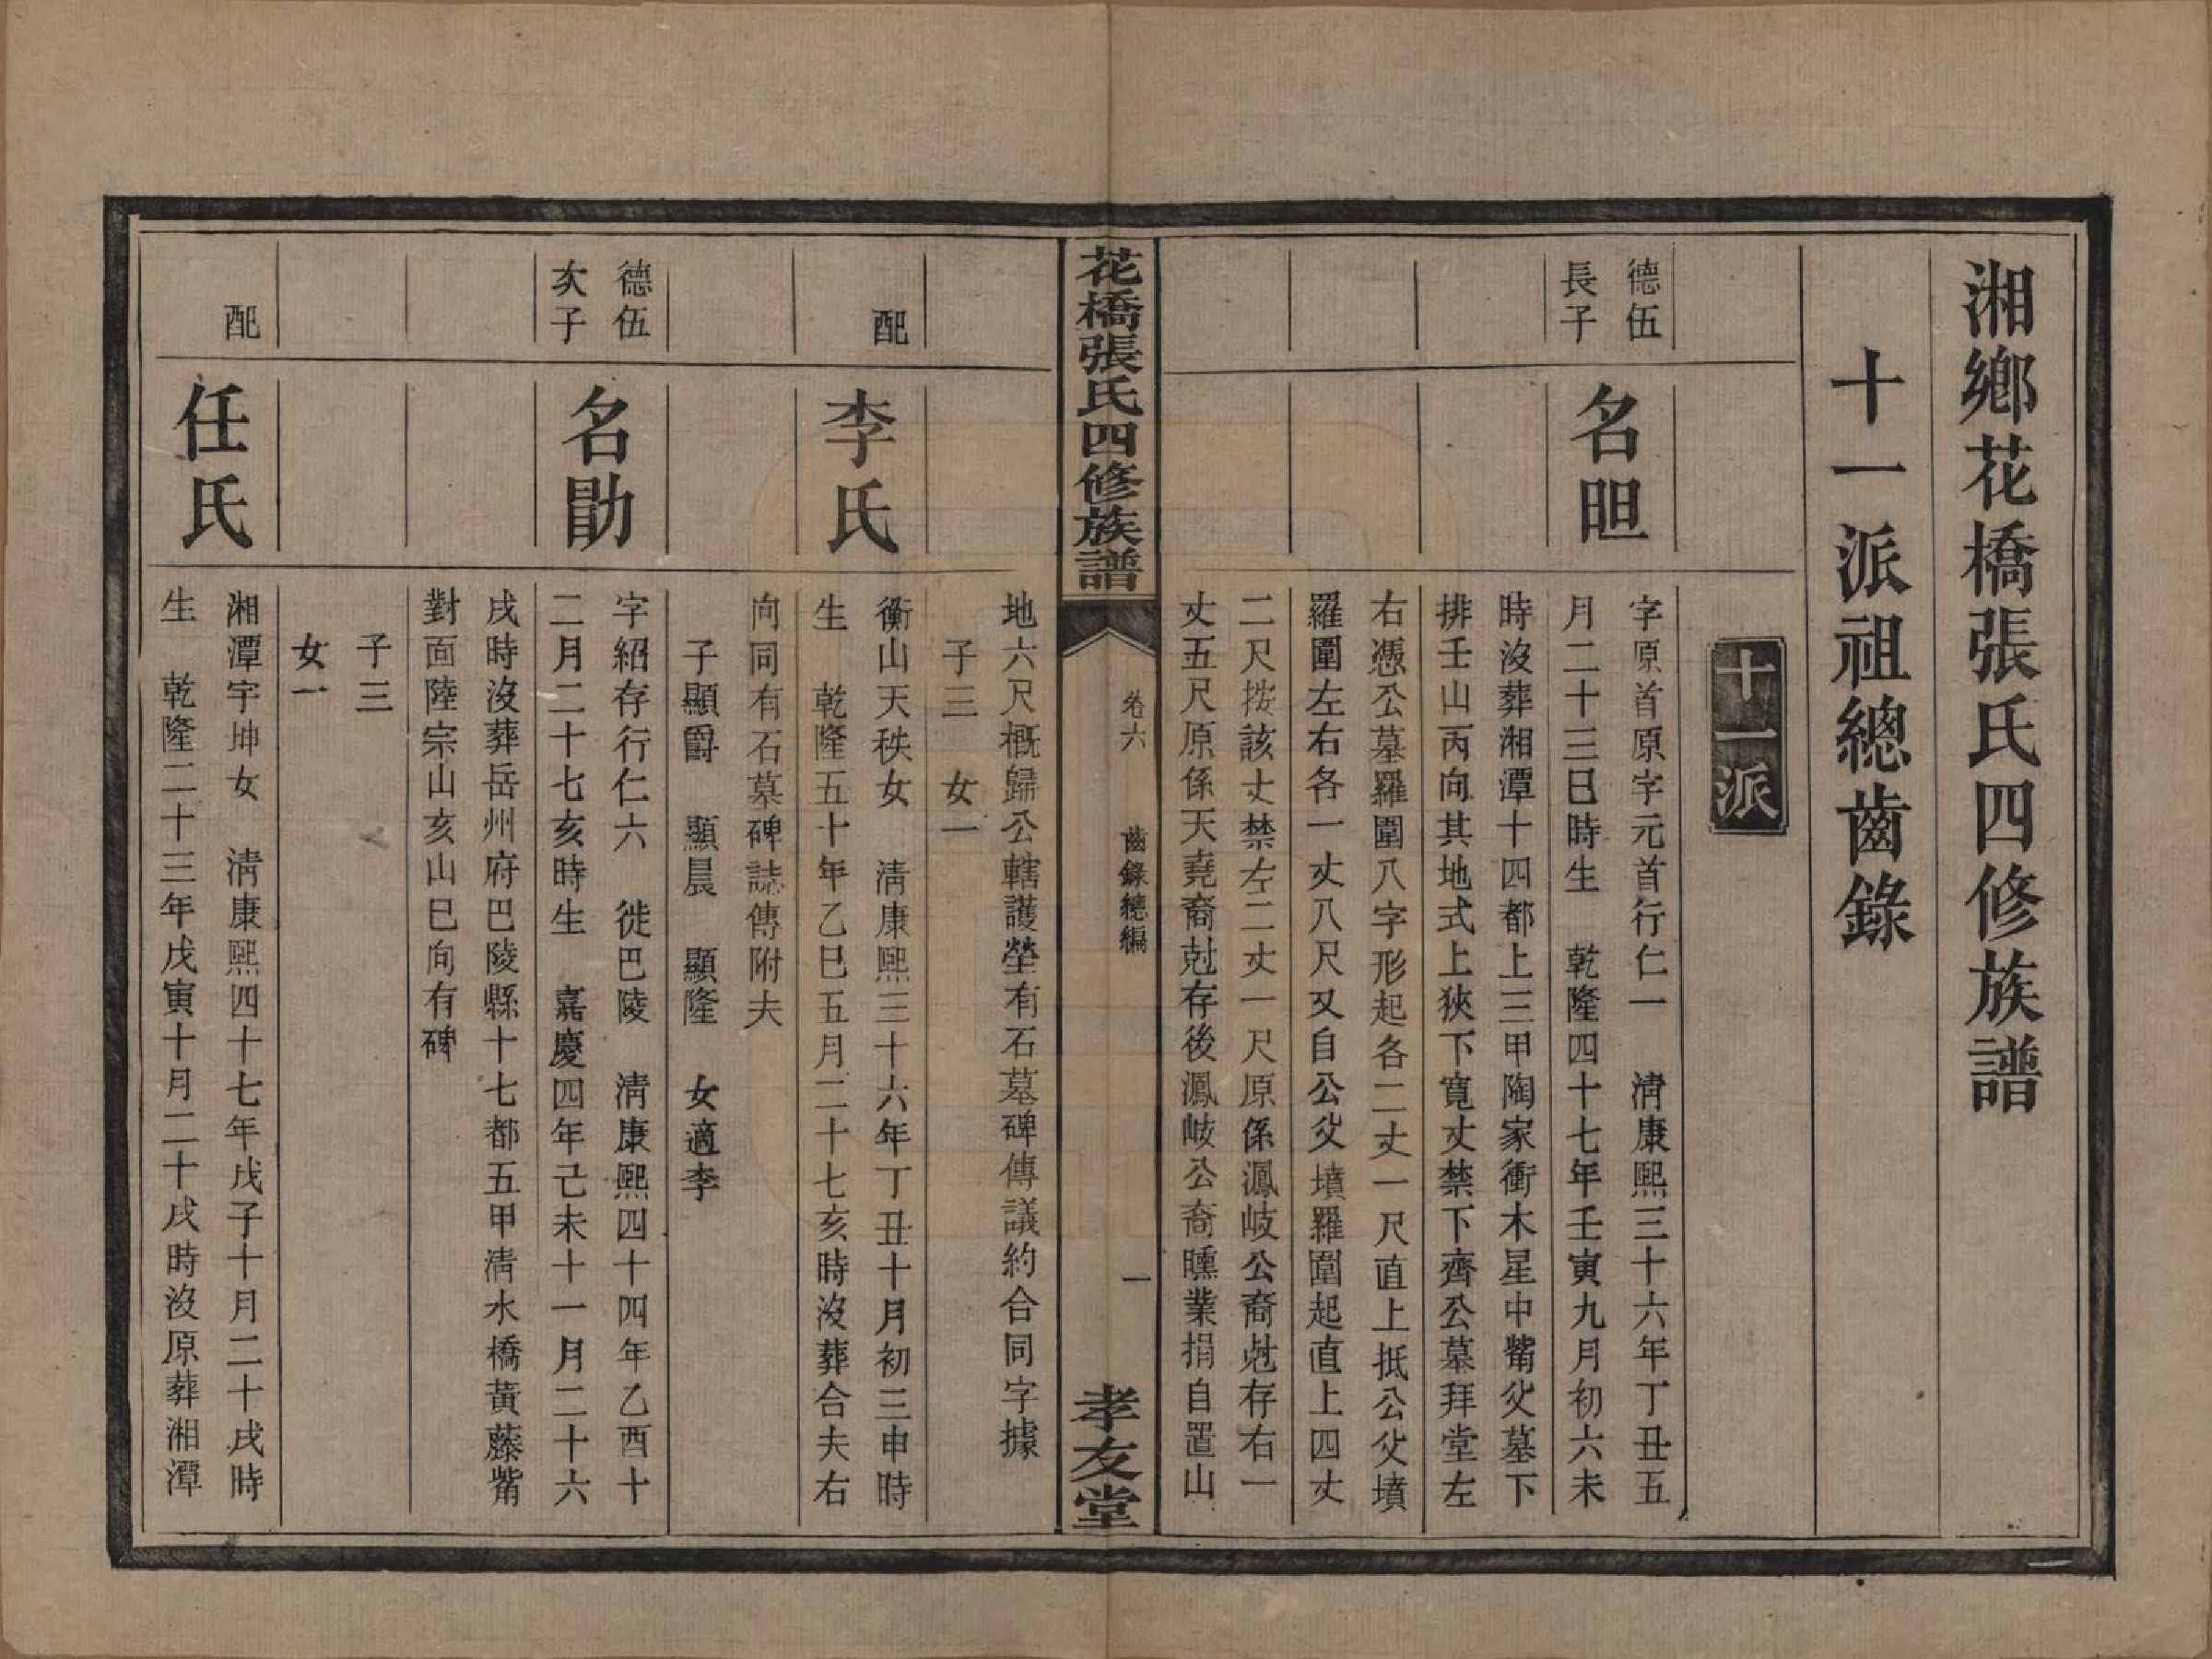 湘鄉花橋張氏四修族譜
十一派祖總齒錄
十一派
德伍
長子
名昛
字原首原字元首行仁一　清康熙三十六年丁丑五
月二十三巳時生　乾隆四十七年壬寅九月初六未
時沒葬湘潭十四都上三甲陶家衝木星中觜父墓下
排壬山丙向其地式上狹下寬丈禁下齊公墓拜堂左
右憑公墓羅圍八字形起各二丈一尺直上抵公父墳
羅圍左右各一丈八尺又自公父墳羅圍起直上四丈
二尺按該丈禁左二丈一尺原係鳳岐公裔兙存右一
丈五尺原係天堯裔兙存後鳳岐公裔曛業捐自置山
花橋張氏四修族譜
卷六
齒錄總編
一
孝友堂
地六尺概歸公轄護塋有石墓碑傳議約合同字據
子三　女一
配
李氏
衡山天秩女　清康熙三十六年丁丑十月初三申時
生　乾隆五十年乙巳五月二十七亥時沒葬合夫右
向同有石墓碑誌傳附夫
子顯爵　顯晨　顯隆　女適李
德伍
次子
名勖
字紹存行仁六　徙巴陵　清康熙四十四年乙酉十
二月二十七亥時生　嘉慶四年己未十一月二十六
戌時沒葬岳州府巴陵縣十七都五甲清水橋黃藤觜
對面陸宗山亥山巳向有碑
子三
女一
配
任氏
湘潭宇坤女　清康熙四十七年戊子十月二十戌時
生　乾隆二十三年戊寅十月二十戌時沒原葬湘潭